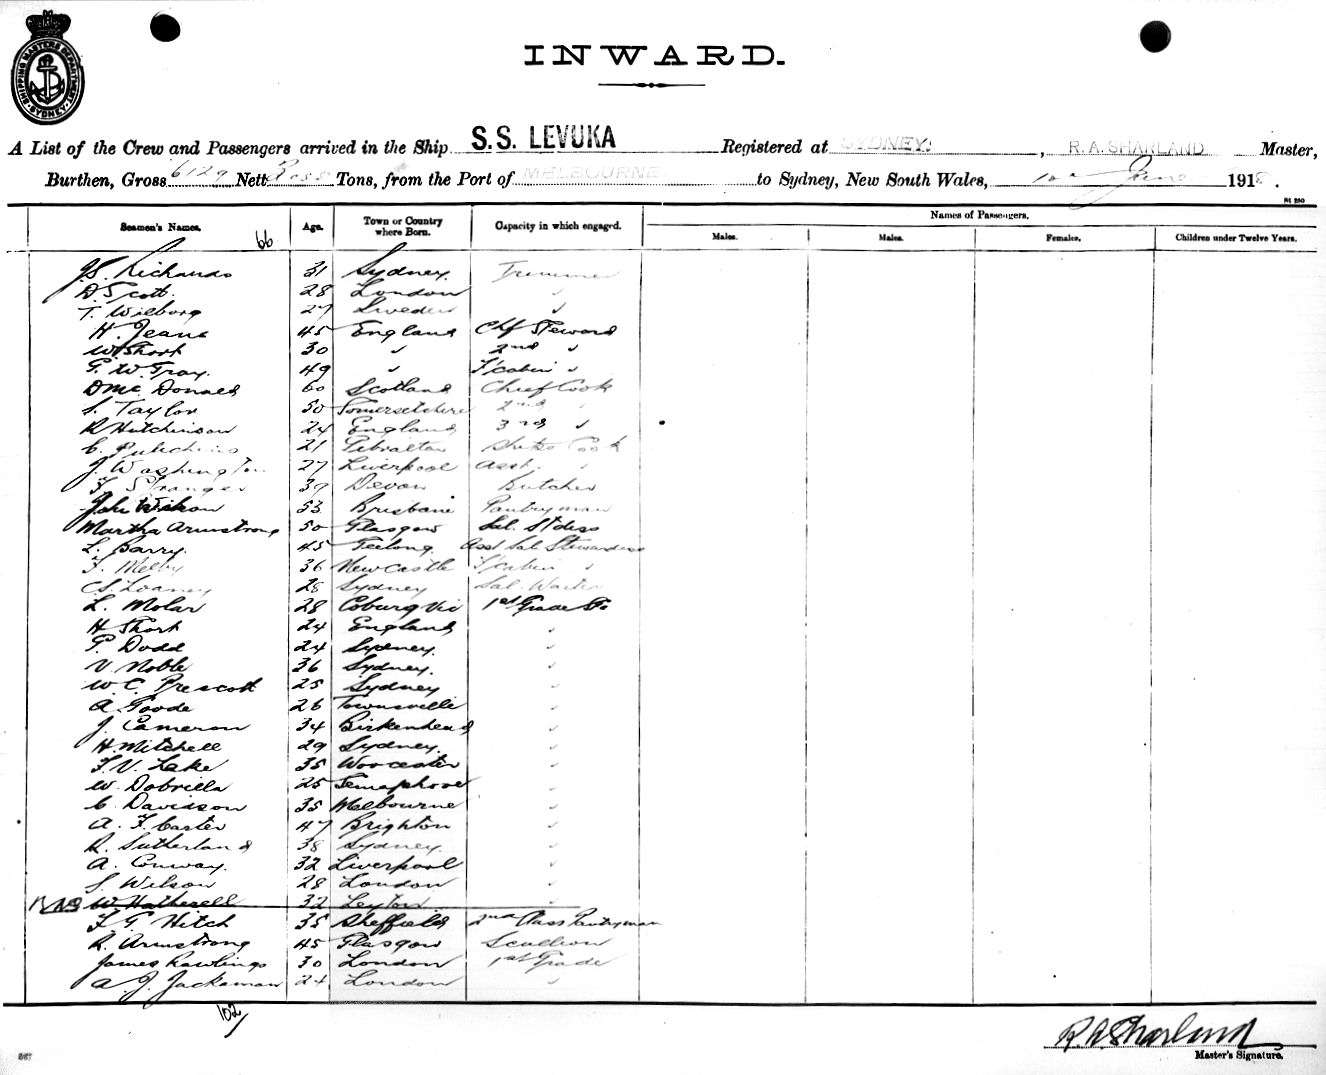 SHIPPING MASTERS DEPARTMENT SYDNEY
INWARD.
A List of the Crew and Passengers arrived in the Ship S.S. LEVUKA Registered at SYDNEY, R.A. SHARLAND Master,
Burthen, Gross 6129 Nett Tons, from the Port of MELBOURNE to Sydney, New South Wales, 10th June 1918.
Seamen's Names. 66 Age. Town or Country where Born. Capacity in which engaged. Names of Passengers.
Males. Males. Females. Children under Twelve Years.
Richards 31 Sydney Trimmer
D. Scott. 28 London "
T. Wilborg 27 Sweden "
H. Jeans 45 England Chf Steward
W. Short 30 " 2nd "
G. W. Gray. 49 " "
D Mc Donald 60 Scotland Chief Cook
S. Taylor 50 Somersetshire 2nd "
R Hutchinson 24 England 3rd "
C. 21 Gibraltar Cook
J. Washington 27 Liverpool Asst. "
F Stranger 39 Devon Butcher
John Wilson 53 Brisbane Pantryman
Martha Armstrong 50 Glasgow Sal. Stdess
L. Barry. 45 Geelong Asst Sal Stewardess
F. Melby 36 Newcastle "
28 Sydney Sal. Waiter
L. Molar 28 Coburg Vic 1st Grade
H Short 24 England "
G. Dodd 24 Sydney. "
V Noble 36 Sydney. "
W. C. Prescott 25 Sydney "
A. Goode 26 Townsville "
J. Cameron 34 Birkenhead "
H. Mitchell 29 Sydney. "
F. V. Lake 35 Worcester "
W. Dobrilla 25 Semaphore "
C. Davidson 35 Melbourne "
A. F. Carter 47 Brighton "
R. Sutherland 38 Sydney. "
A. Conway. 32 Liverpool "
S. Wilson 28 London "
W Hatherell 32 Leyton "
F. G. Hitch 35 Sheffield 2nd Class Pantryman
R. Armstrong 45 Glasgow Scullion
James Rawlings 30 London 1st Grade
A. J. Jackaman 24 London "
102
R A Sharland
Master's Signature.